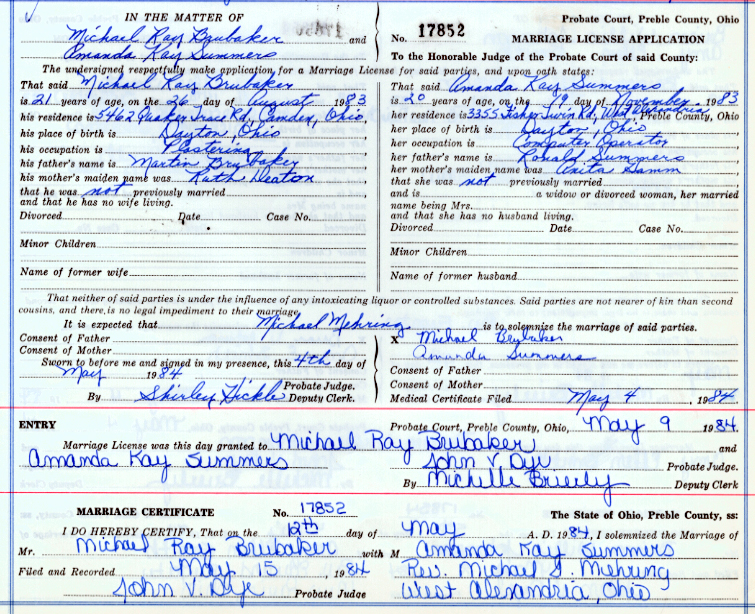 IN THE MATTER OF
Michael Ray Brubaker and
Amanda Kay Summers
Probate Court, Preble County, Ohio
No. 17852 MARRIAGE LICENSE APPLICATION
To the Honorable Judge of the Probate Court of said County:
The undersigned respectfully make application for a Marriage License for said parties, and upon oath states:
That said Michael Ray Brubaker
is 21 years of age, on the 26 day of August 1983
his residence is 5462 Quaker Trace Rd, Camden, Ohio
his place of birth is Dayton, Ohio
his occupation is Plastering
his father's name is Martin Brubaker
his mother's maiden name was Ruth Deaton
that he was not previously married
and that he has no wife living.
Divorced Date Case No.
Minor Children
Name of former wife
That said Amanda Kay Summers
is 20 years of age, on the 19 day of November 1983
her residence is 3355 Fisher Twin Rd, West Alexandria Preble County, Ohio
her place of birth is Dayton, Ohio
her occupation is Computer Operator
her father's name is Ronald Summers
her mother's maiden name was Anita Hamm
that she was not previously married
and is a widow or divorced woman, her married
name being Mrs.
and that she has no husband living.
Divorced Date Case No.
Minor Children
Name of former husband
That neither of said parties is under the influence of any intoxicating liquor or controlled substances. Said parties are not nearer of kin than second
cousins, and there is no legal impediment to their marriage
It is expected that Michael Mehring is to solemnize the marriage of said parties.
Consent of Father
Consent of Mother
Sworn to before me and signed in my presence, this 4th day of
May 1984
Probate Judge.
By Shirley Hickle Deputy Clerk.
X Michael Brubaker
Amanda Summers
Consent of Father
Consent of Mother
Medical Certificate Filed May 4, 1984
ENTRY Probate Court, Preble County, Ohio, May 9 1984.
Marriage License was this day granted to Michael Ray Brubaker and
Amanda Kay Summers John V. Dye Probate Judge.
By Michelle Brierly Deputy Clerk
MARRIAGE CERTIFICATE No. 17852 The State of Ohio, Preble County, ss:
I DO HEREBY CERTIFY, That on the 12th day of May A. D. 1984, I solemnized the Marriage of
Mr. Michael Ray Brubaker with M Amanda Kay Summers
Filed and Recorded May 15, 1984 Rev. Michael S. Mehring
John V. Dye Probate Judge West Alexandria, Ohio